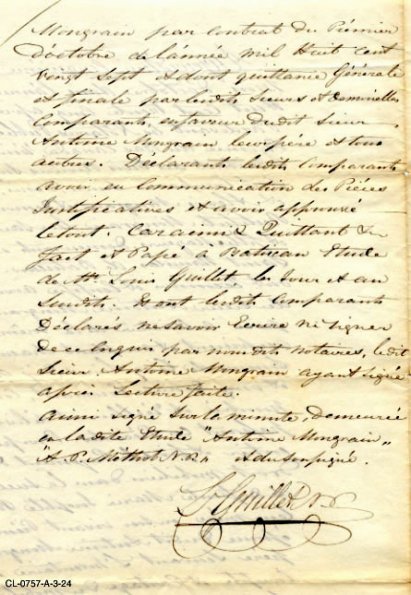 Mongrain par contrat du Prémier
D'octobre de l'année mil Huit cent
vingt sept et dont quittance Générale
et finale par lesdits Sieurs et Demoiselles
Comparants en faveur dudit Sieur
Antoine Mongrain leur pére et tous
autres. Déclarants lesdits Comparants
avoir eu Communication des Piéces
Justificatives et avoir approuvé
letout. Car ainsi & Quittant &
fait et Passé à Batiscan Etude
de Mtre Louis Guillet les Jour et an
Susdits. Et ont lesdits Comparants
Déclarés ne Savoir Ecrire ni Signer
de ce enquis par nousdits notaires, ledit
Sieur Antoine Mongrain ayant Signé
après Lecture faite.
ainsi signé sur la minute, demeurée
en ladite Etude "Antoine Mongrain"
"A. P. Methot N.P." et du soussigné.
L. Guillet N.P.
CL-0757-A-3-24